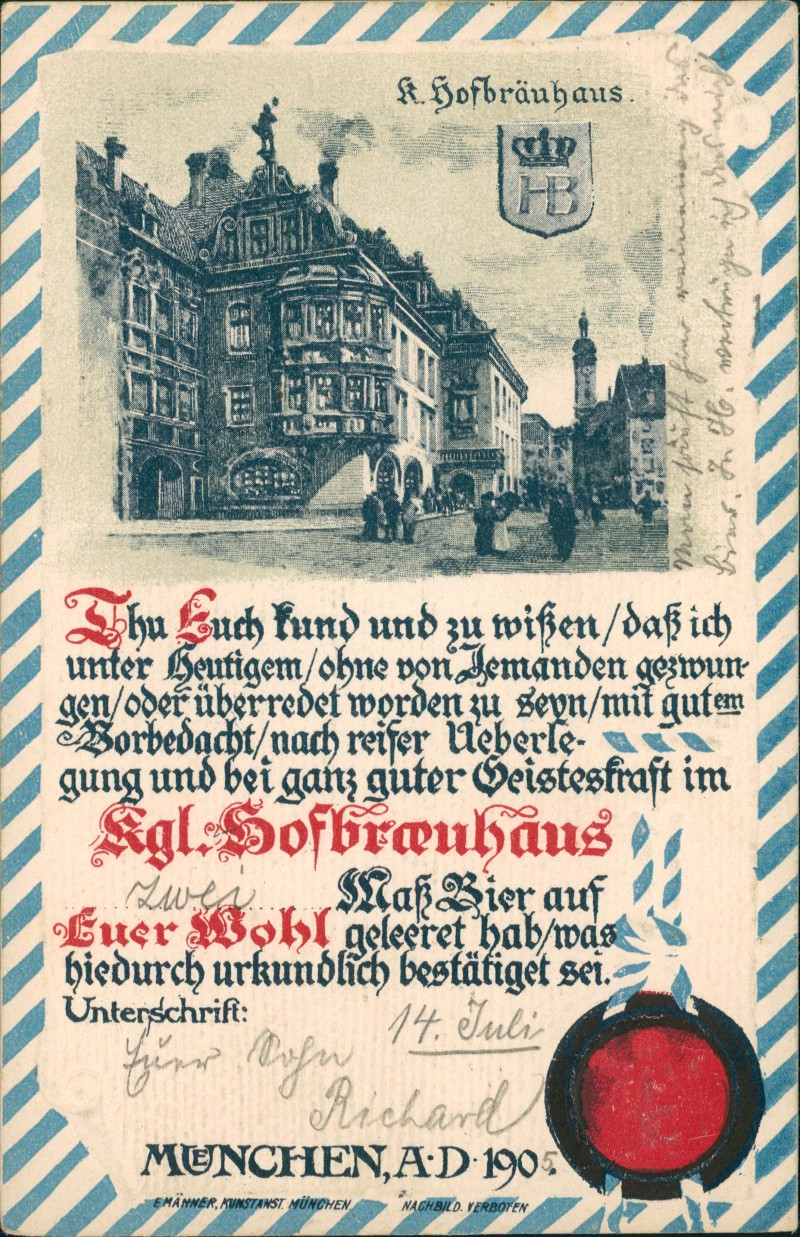 K. Hofbräuhaus.
HB
Man sauft hier
Bier. In
Thu Euch kund und zu wißen/daß ich
unter Heutigem/ohne von Jemanden gezwun-
gen/oder überredet worden zu seyn/mit gutem
Vorbedacht/nach reifer Ueberle-
gung und bei ganz guter Geisteskraft im
Kgl. Hofbræuhaus
zwei Maß Bier auf
Euer Wohl geleeret hab/was
hiedurch urkundlich bestätiget sei.
Unterschrift:
14. Juli
Euer Sohn
Richard
MUENCHEN, A·D·1905.
E MÄNNER, KUNSTANST. MÜNCHEN NACHBILD. VERBOTEN